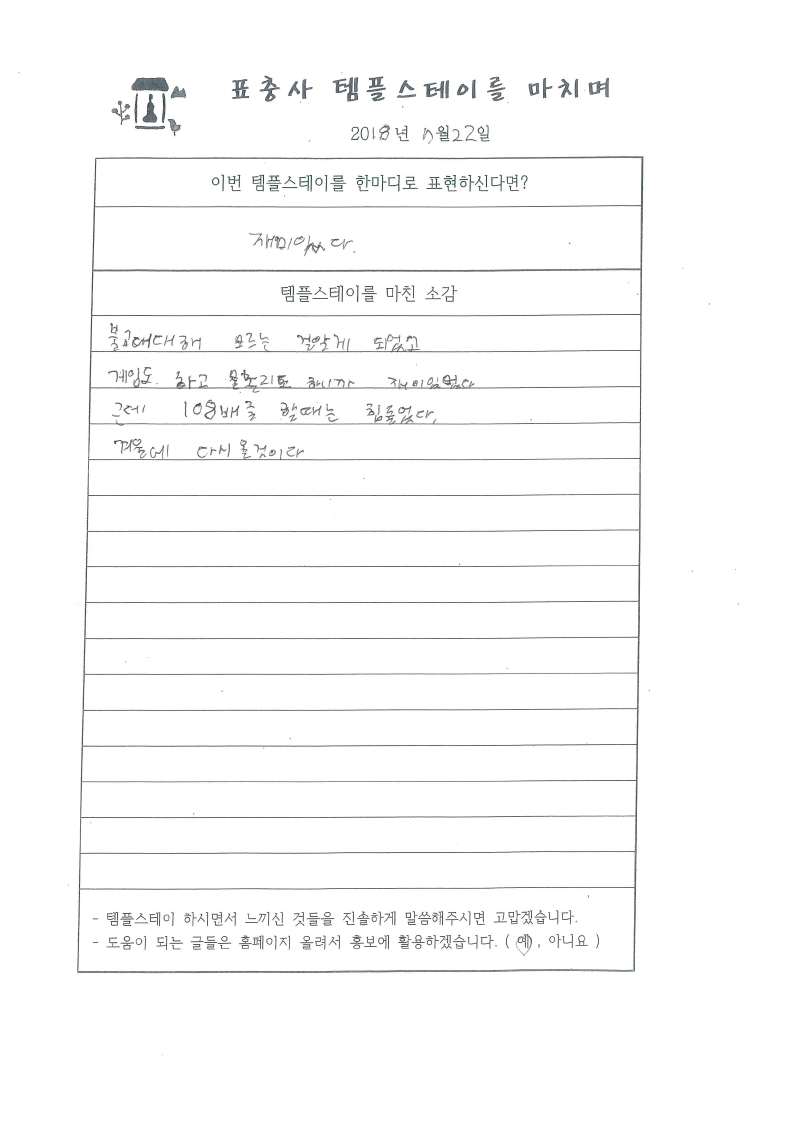 표충사 템플스테이를 마치며
2018년 7월22일
이번 템플스테이를 한마디로 표현하신다면?
재미있다.
템플스테이를 마친 소감
불교에대해 모르는 걸알게 되었고
게임도 하고 하니까
근데 108배를 할때는 힘들었다.
겨울에 다시 올것이다
- 템플스테이 하시면서 느끼신 것들을 진솔하게 말씀해주시면 고맙겠습니다.
- 도움이 되는 글들은 홈페이지 올려서 홍보에 활용하겠습니다. ( 예 , 아니요 )